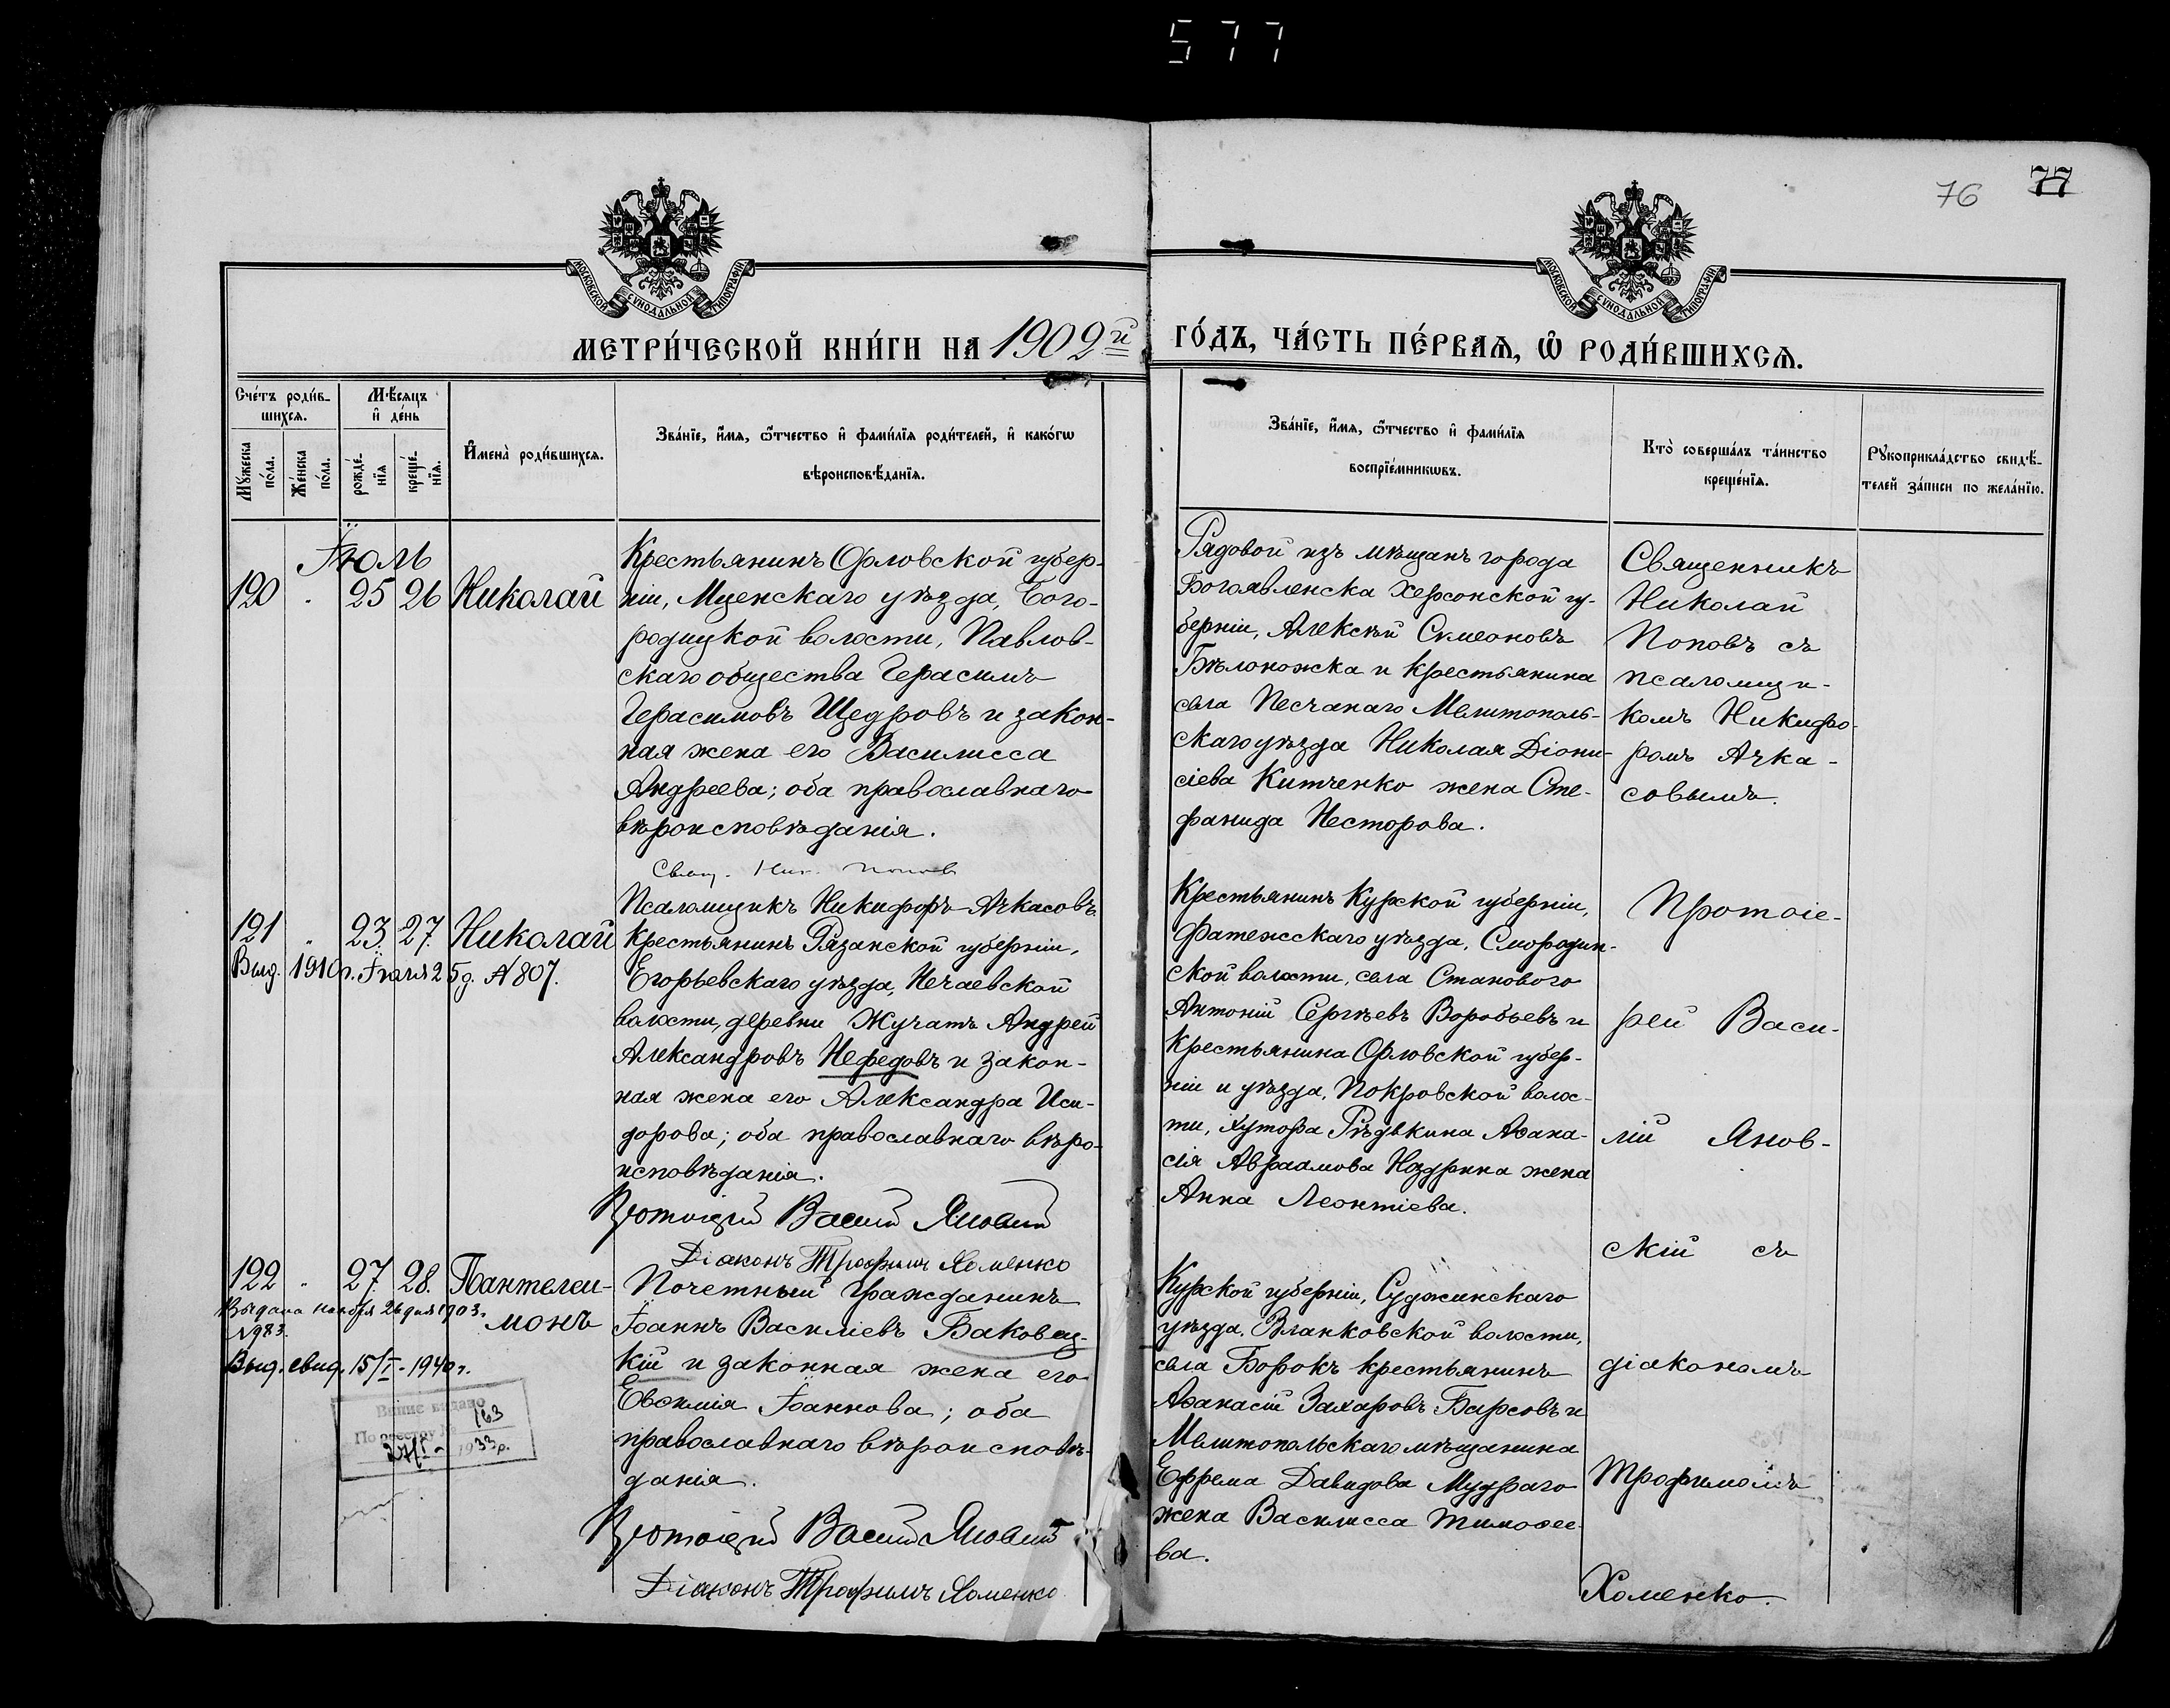 577
76 77
МОСКОВСКОЙ СѴНОДАЛЬНОЙ ТИПОГРАФІИ
МОСКОВСКОЙ СѴНОДАЛЬНОЙ ТИПОГРАФІИ
МЕТРИ́ЧЕСКОЙ КНИ́ГИ НА 1902й ГО́ДЪ, ЧА́СТЬ ПЕ́РВАѦ, Ѡ РОДИ́ВШИХСѦ.
Сче́тъ роди́в-
шихся.
Мѣ́сяцъ
и҆ де́нь
Мꙋ́жеска
по́ла.
Же́нска
по́ла.
рожде́-
нїя
креще́-
нїя.
И҆мена̀ роди́вшихся.
Зва́нїе, и҆́мя, ѻ҆́тчество и҆ фами́лїя роди́телей, и҆ како́гѡ
вѣроисповѣ́данїя.
Зва́нїе, и҆́мя, ѻ҆́тчество и҆ фами́лїя
воспрїе́мникѡвъ.
Кто̀ соверша́лъ та́инство
креще́нїя.
Рꙋкоприкла́дство свидѣ́-
телей за́писи по жела́нїю.
Іюль
120 " 25 26 Николай
Крестьянинъ Орловской губер-
ніи, Мценскаго уѣзда, Бого-
родицкой волости, Павлов-
скаго общества Герасимъ
Герасимовъ Щедровъ и закон-
ная жена его Василисса
Андреева; оба православнаго
вѣроисповѣданія.
Свящ. Ник. Попов
Псаломщикъ Никифоръ Ачкасовъ
Рядовой изъ мѣщанъ города
Богоявленска Херсонской гу-
берніи, Алексѣй Симеоновъ
Бѣлоножка и крестьянина
села Песчанаго Мелитополь-
скаго уѣзда Николая Діони-
сіева Китченко жена Сте-
фанида Несторова.
Священникъ
Николай
Поповъ съ
псаломщи-
комъ Никифо-
ромъ Ачка-
совымъ.
121 " 23. 27. Николай
Выд. 1910г. Іюля 25 д. № 807.
Крестьянинъ Рязанской губерніи,
Егорьевскаго уѣзда, Нечаевской
волости, деревни Жучатъ Андрей
Александровъ Нефедовъ и закон-
ная жена его Александра Иси-
дорова; оба православнаго вѣро-
исповѣданія.
Протоіерей Василій Яновскій
Діаконъ Трофимъ Хоменко
Крестьянинъ Курской губерніи,
Фатежскаго уѣзда, Смородин-
ской волости, села Становаго
Антоній Сергѣевъ Воробьевъ и
крестьянина Орловской губер-
ніи и уѣзда, Покровской волос-
ти, хутора Рѣдькина Аѳана-
сія Авраамова Ноздрина жена
Анна Леонтіева.
Протоіе-
рей Васи-
лій Янов-
скій съ
діакономъ
Трофимомъ
Хоменко.
122 " 27. 28. Пантелеи-
монъ
Выдана ноября 26 дня 1903г.
№983.
Выд. свид. 15/I - 1940 г.
Выпис видано
По реестру № 163
27/I - 1933 р.
Почетный Гражданинъ
Іоаннъ Василіевъ Баковец-
кій и законная жена его
Евѳимія Іоаннова; оба
православнаго вѣроисповѣ-
данія.
Протоіерей Василій Яновскій
Діаконъ Трофимъ Хоменко
Курской губерніи, Суджанскаго
уѣзда, волости,
села Борокъ крестьянинъ
Аѳанасій Захаровъ Барсовъ и
Мелитопольскаго мѣщанина
Ефрема Давидова Мудраго
жена Василисса Тимоѳее-
ва.